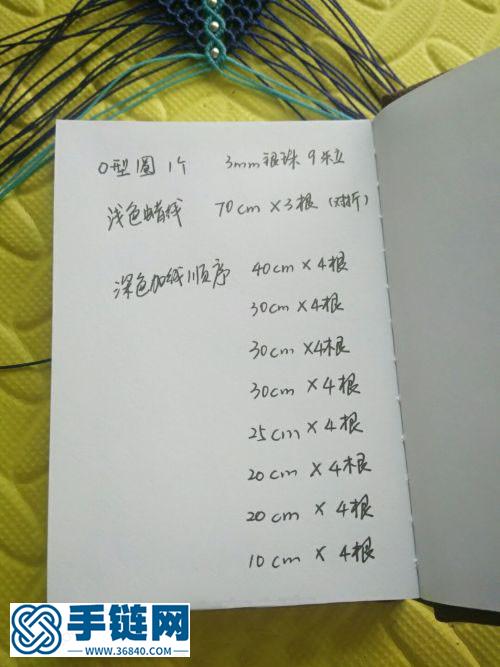 O型圈 1个 3mm银珠 9粒
浅色蜡线 70cm×3根(对折)
深色加线顺序 40cm×4根
30cm×4根
30cm×4根
30cm×4根
25cm×4根
20cm×4根
20cm×4根
10cm×4根
手链网
www.36840.com